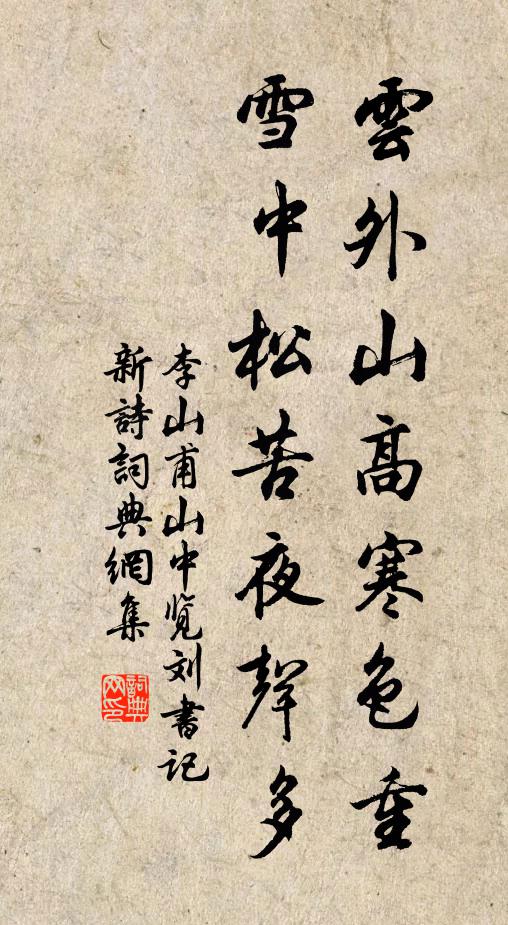 雲外山高寒色重
雪中松苦夜聲多
李山甫山中覽刘書記
新詩詞典網集
詞典
网印